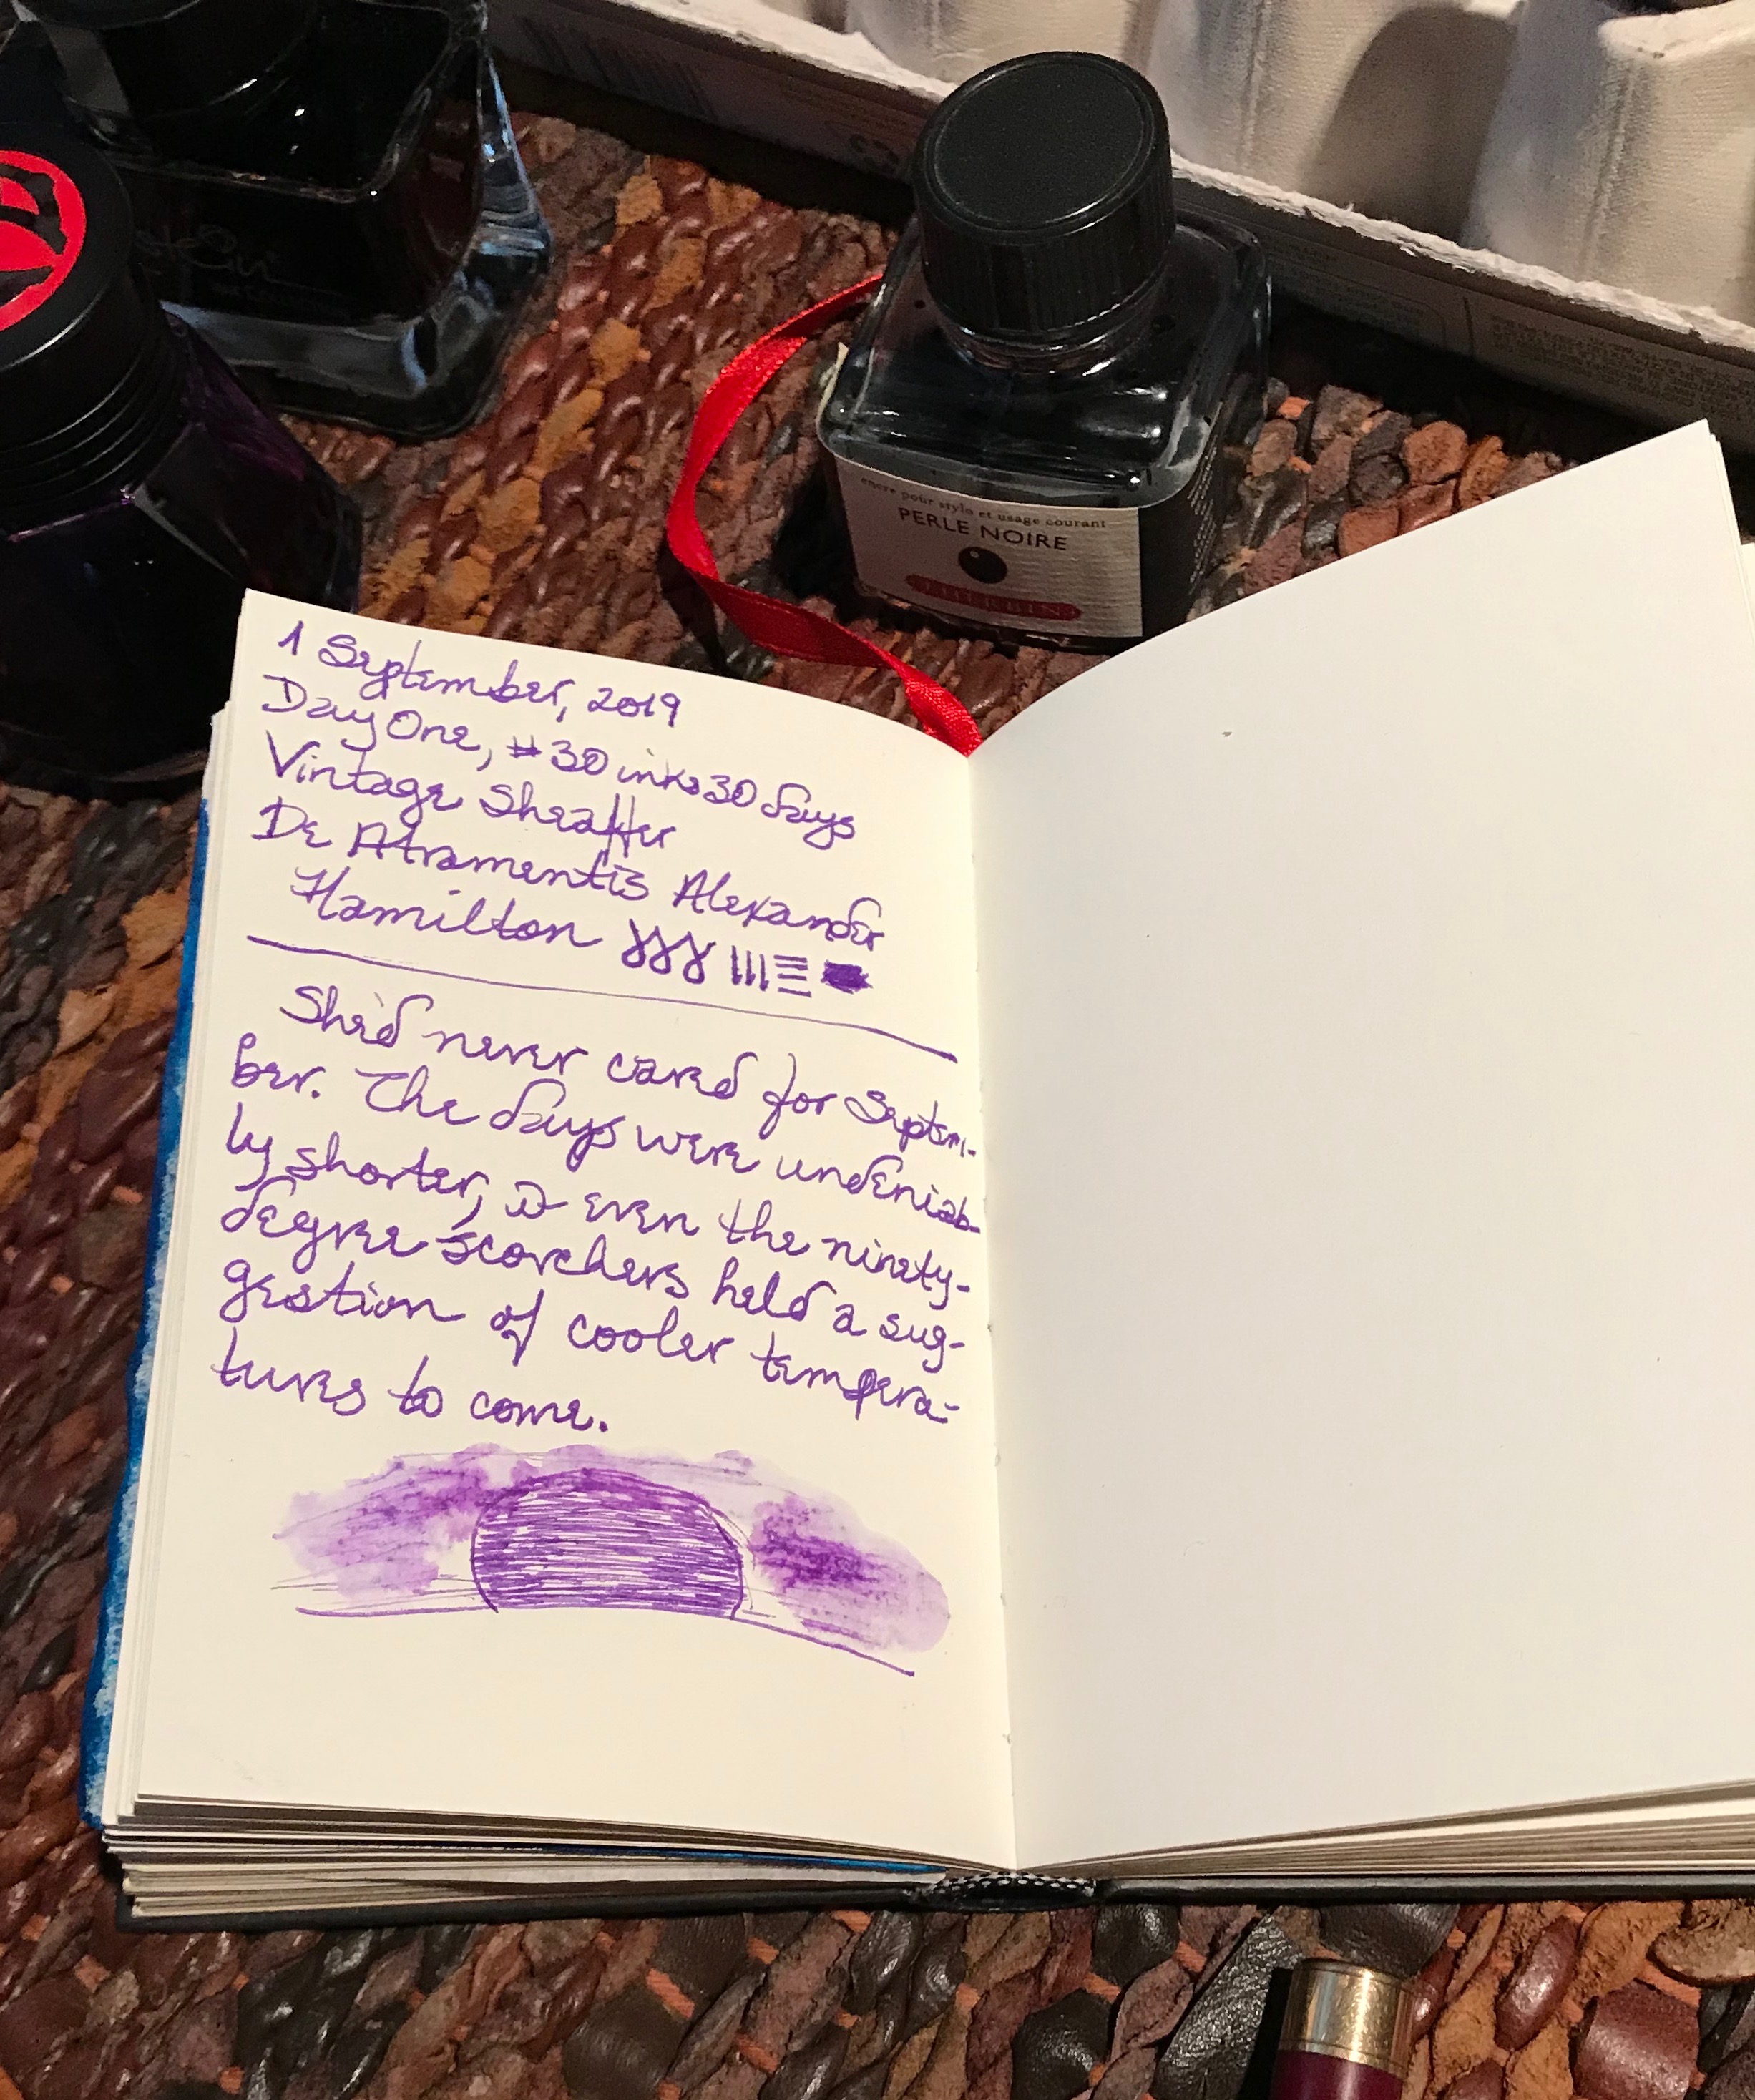 encre pour stylo et usage courant
PERLE NOIRE
J. HERBIN
1 September, 2019
Day One, #30 inks 30 days
Vintage Sheaffer
De Atramentis Alexander
Hamilton
She'd never cared for Septem-
ber. The days were undeniab-
ly shorter, & even the ninety-
degree scorchers held a sug-
gestion of cooler tempera-
tures to come.